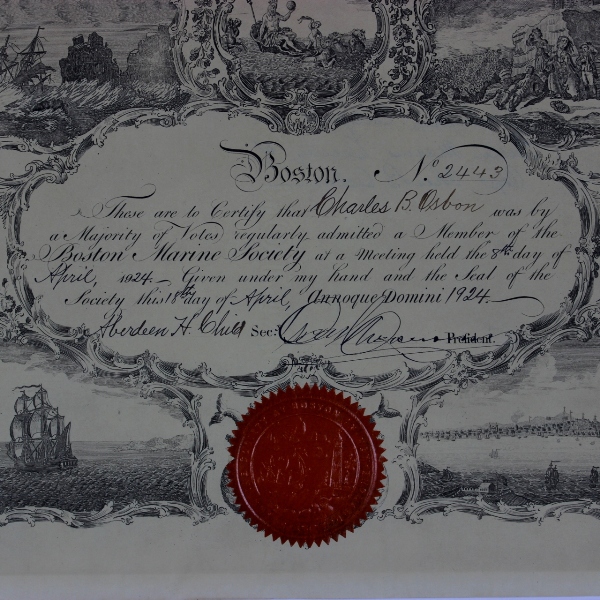 Boston. No. 2443
These are to Certify that Charles B. Osbon was by
a Majority of Votes regularly admitted a Member of the
Boston Marine Society at a Meeting held the 8th day of
April, 1924 — Given under my hand and the Seal of the
Society this 18th day of April, Annoque Domini 1924.
Aberdeen H. Child Sec: President.
BOSTON